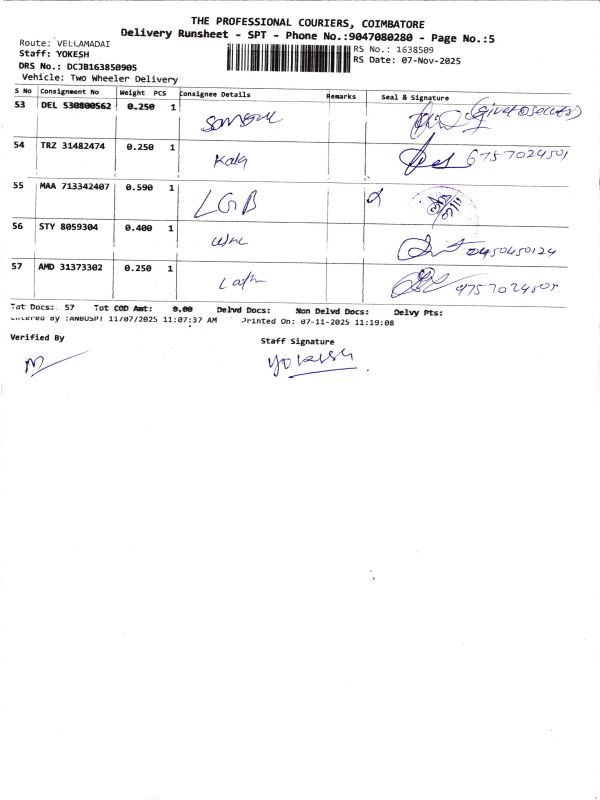 THE PROFESSIONAL COURIERS, COIMBATORE
Delivery Runsheet - SPT - Phone No.:9047080280 - Page No.:5
Route: VELLAMADAI
RS No.: 1638509
Staff: YOKESH
RS Date: 07-Nov-2025
DRS No.: DCJB163850905
Vehicle: Two Wheeler Delivery
S No Consignment No Weight PCS Consignee Details Remarks Seal & Signature
53 DEL 530800562 0.250 1
54 TRZ 31482474 0.250 1 Kala
55 MAA 713342407 0.590 1 LGB
56 STY 8059304 0.400 1
57 AMD 31373302 0.250 1
Tot Docs: 57 Tot COD Amt: 0.00 Delvd Docs: Non Delvd Docs: Delvy Pts:
Entered By :ANBUSPT 11/07/2025 11:07:37 AM Printed On: 07-11-2025 11:19:08
Verified By
Staff Signature
Yokesh